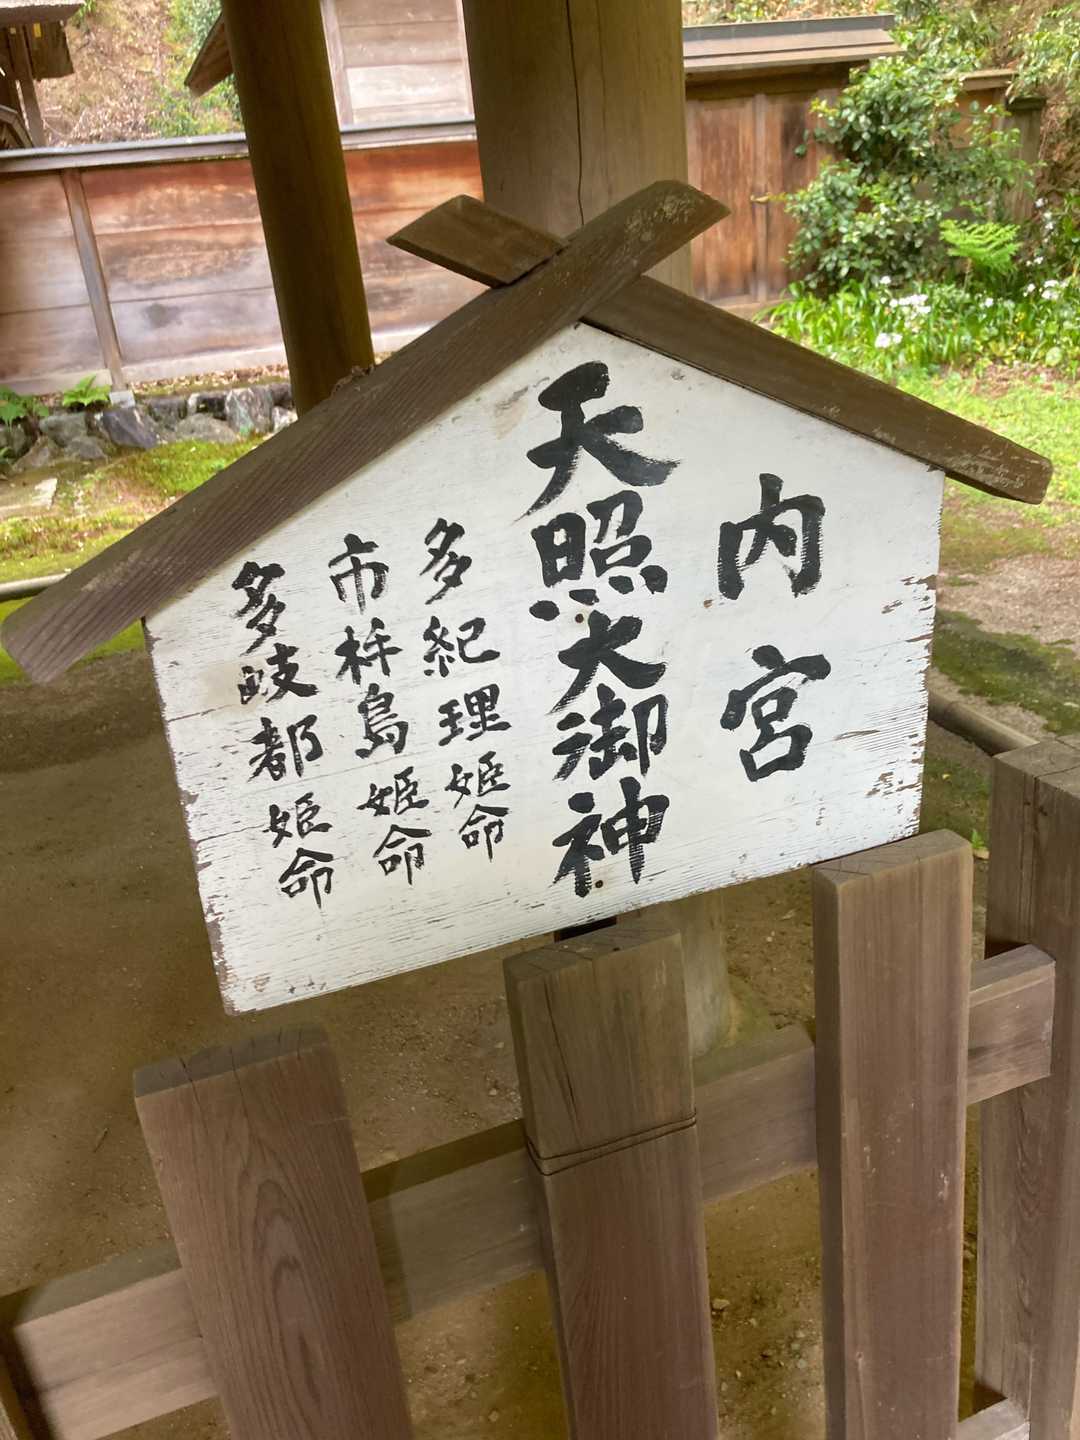 内宮
天照大御神
多紀理姫命
市杵島姫命
多岐都姫命